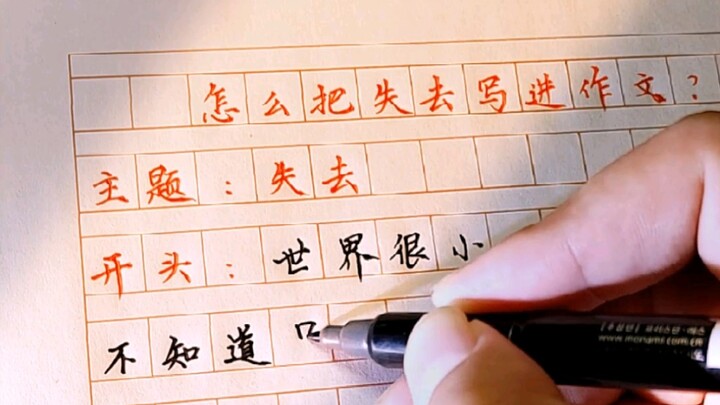 怎么把失去写进作文?
主题:失去
开头:世界很小
不知道
www.monami.com.cn